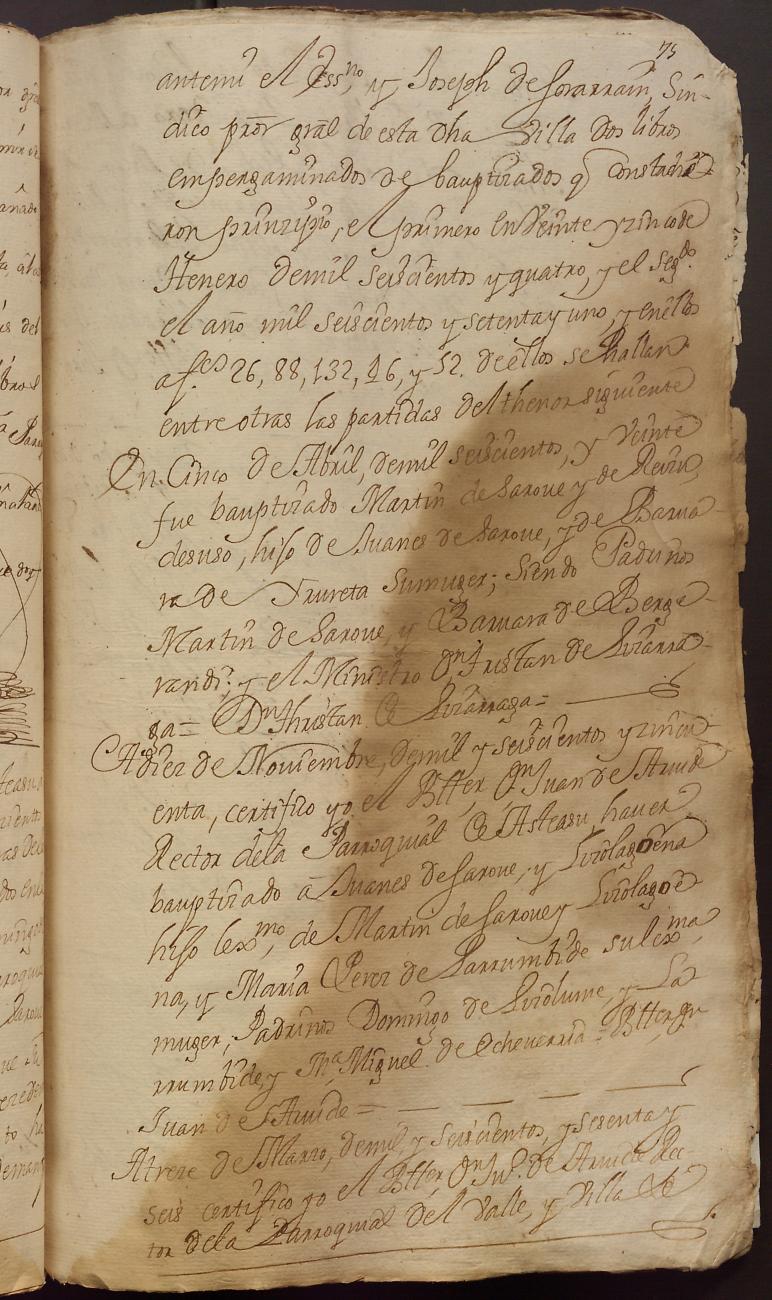 75
antemi el Essno, y Joseph de Sorarrain, Sin-
dico pror gral de esta dha Villa dos libros
empergaminados de bauptizados q constad
ron prinzipio, el primero en Veinte y zinco de
Henero de mil seiscientos y quatro, y el segdo
el año mil seiscientos y setenta y uno, y en ellos
a fes 26, 88, 132, 16, y 52. de ellos se hallan
entre otras las partidas del thenor siguiente
En Cinco de Abril, de mil seiscientos, y Veinte
fue bauptizado Martin de Saroue y de
desuso, hijo de Juanes de Saroue, y de Barua-
ra de Yrureta su muger; siendo Padrinos
Martin de Saroue, y Baruara de Berge-
randi; y el Ministro Dn Tristan de Lizarra-
ga = Dn Thristan de Lizarraga =
A diez de Noviembre, de mil y seiscientos y zincu-
enta, certifico yo el Bller Dn Juan de Aruide
Rector de la Parroquial de Asteasu haver
bauptizado a Juanes de Saroue, y Lizolagoena
hijo lexmo, de Martin de Saroue y Lizolagoe
na, y Maria Perez de Larrumbide su lexma
muger, Padrinos Domingo de Lizolume, y La
rrumbide, y Ma Miguel de Echeuerria = Bller Dn
Juan de Aruide =
A treze de Marzo, de mil, y seiscientos, y sesenta y
seis certifico yo el Bller Dn Jun de Aruide Rec-
tor de la Parroquial del Valle, y Villa de